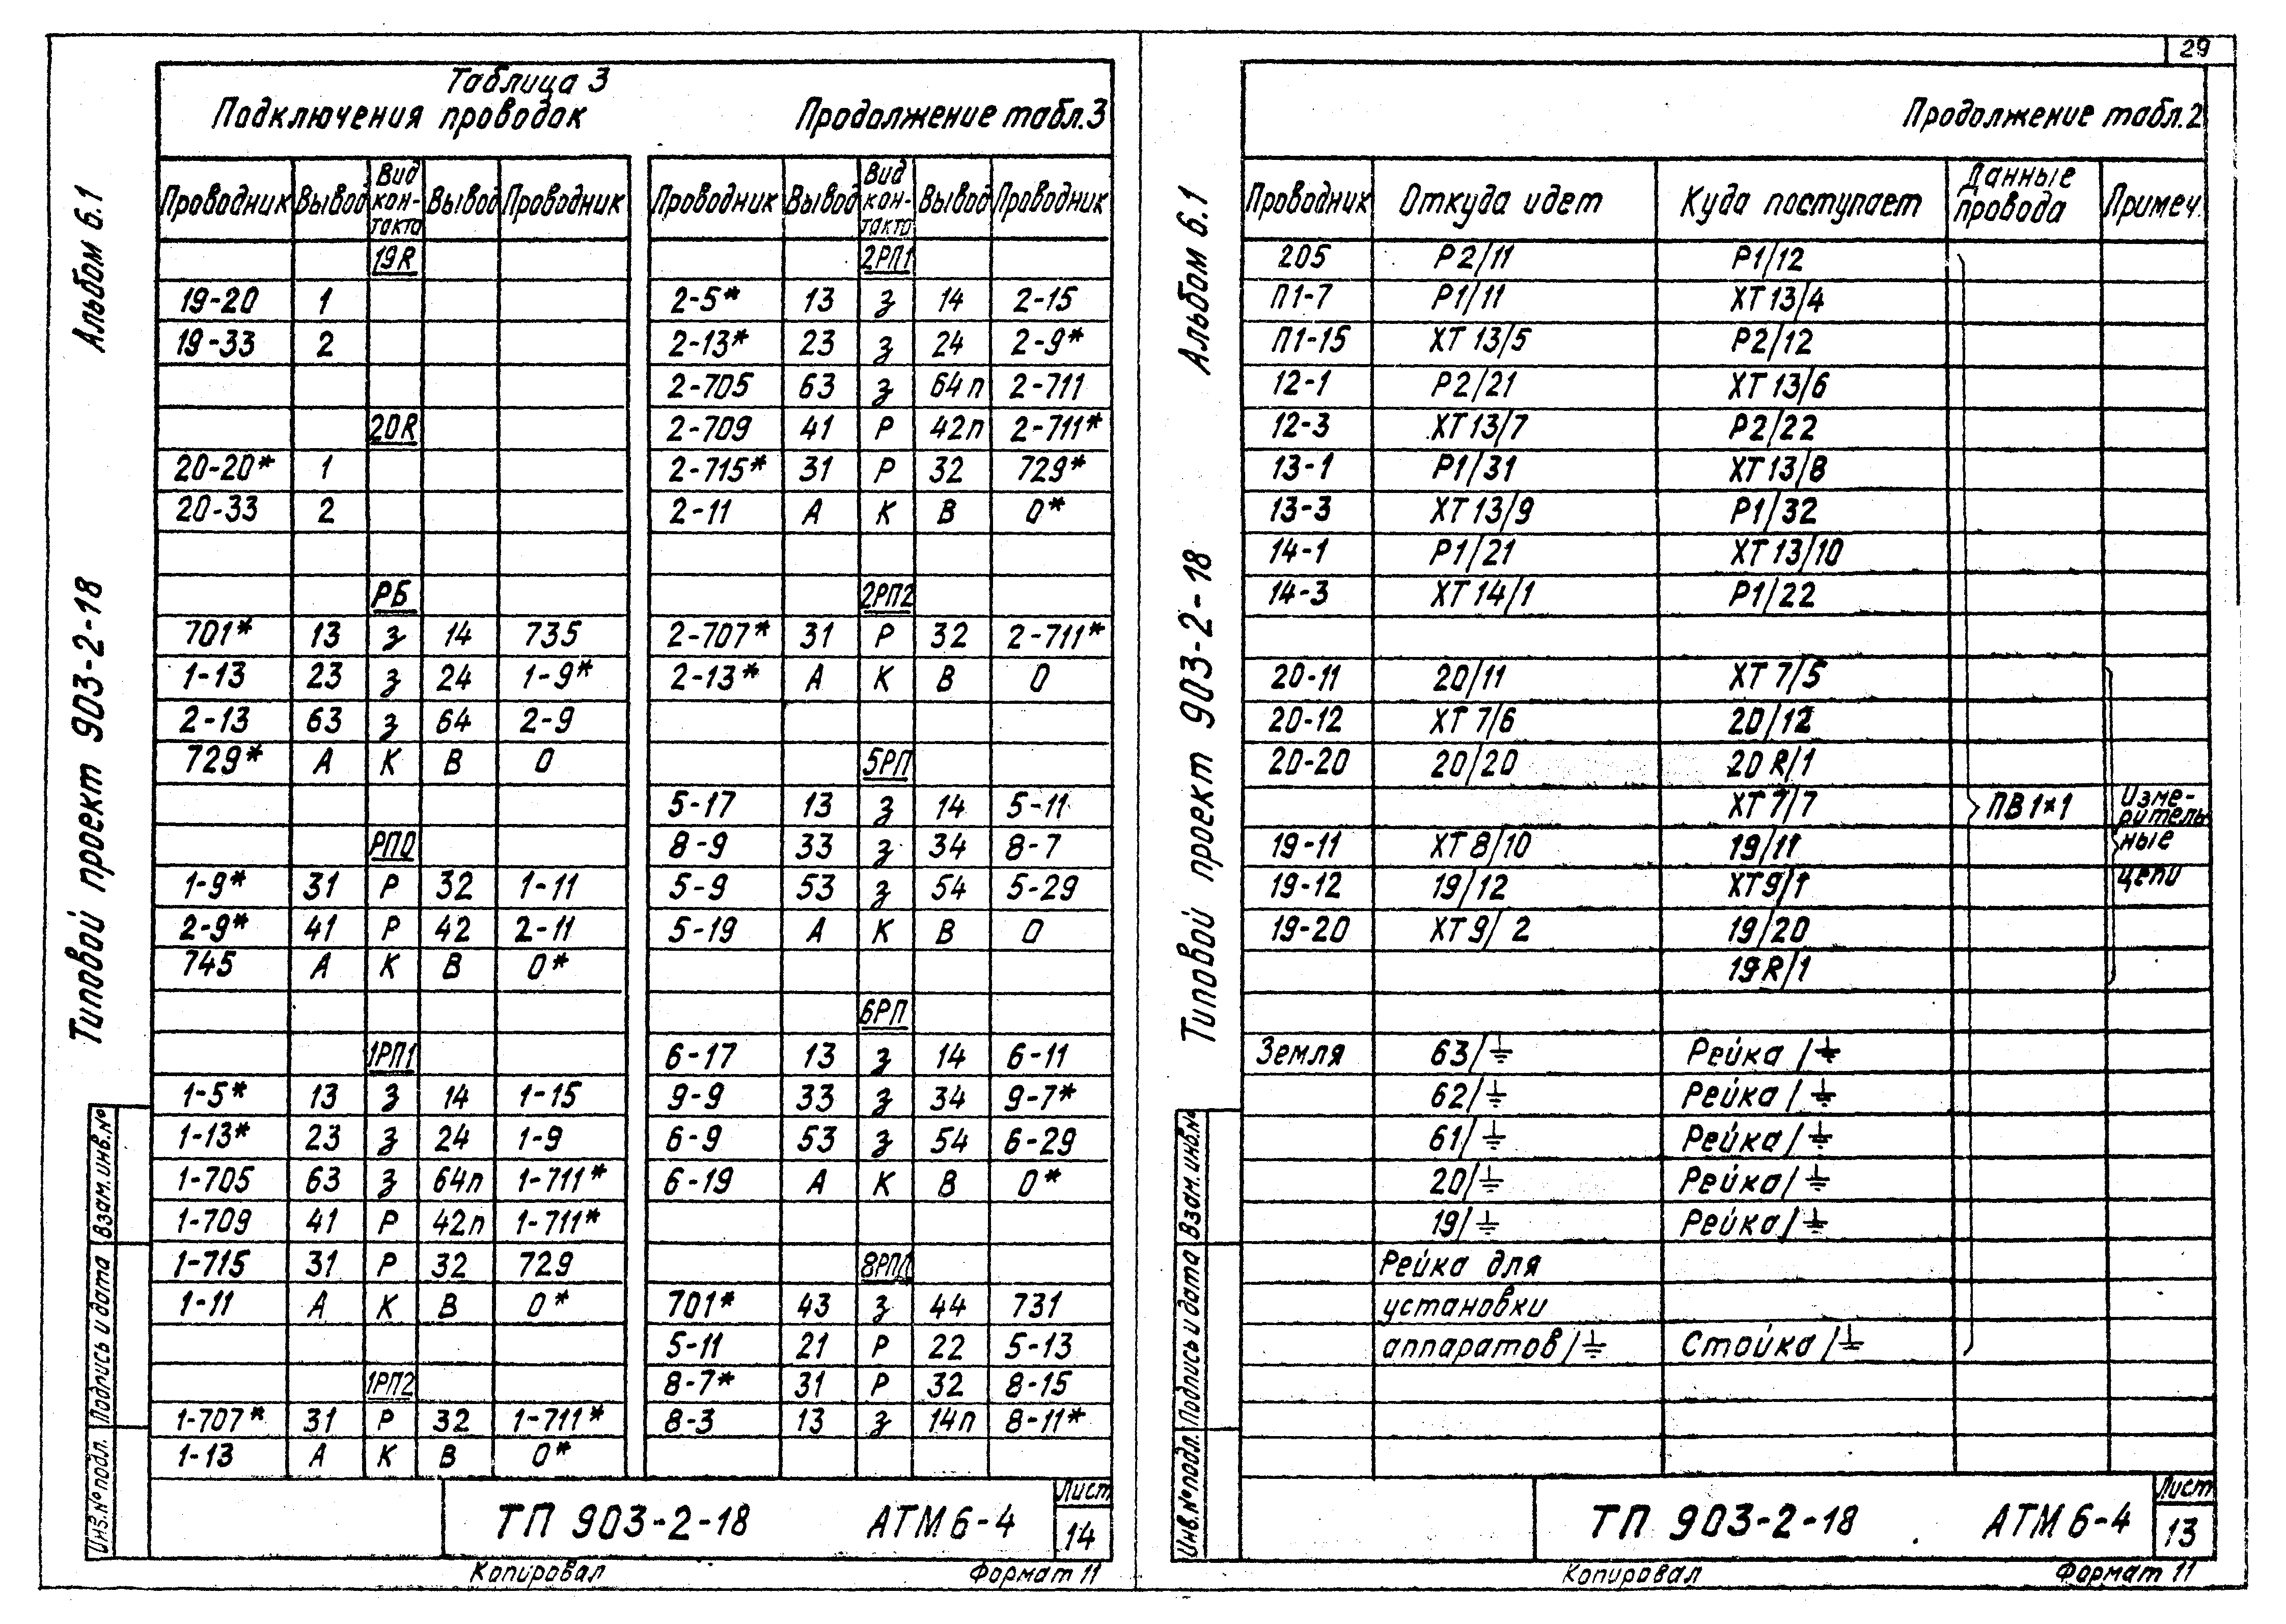 29
Альбом 6.1
Типовой проект 903-2-18
Таблица 3
Подключения проводок
Продолжение табл.3
Проводник Вывод Вид контакта Вывод Проводник
19R
19-20 1
19-33 2
20R
20-20* 1
20-33 2
РБ
701* 13 з 14 735
1-13 23 з 24 1-9*
2-13 63 з 64 2-9
729* А К В 0
РПО
1-9* 31 Р 32 1-11
2-9* 41 Р 42 2-11
745 А К В 0*
1РП1
1-5* 13 з 14 1-15
1-13* 23 з 24 1-9
1-705 63 з 64п 1-711*
1-709 41 Р 42п 1-711*
1-715 31 Р 32 729
1-11 А К В 0*
1РП2
1-707* 31 Р 32 1-711*
1-13 А К В 0*
Проводник Вывод Вид контакта Вывод Проводник
2РП1
2-5* 13 з 14 2-15
2-13* 23 з 24 2-9*
2-705 63 з 64п 2-711
2-709 41 Р 42п 2-711*
2-715* 31 Р 32 729*
2-11 А К В 0*
2РП2
2-707* 31 Р 32 2-711*
2-13* А К В 0
5РП
5-17 13 з 14 5-11
8-9 33 з 34 8-7
5-9 53 з 54 5-29
5-19 А К В 0
6РП
6-17 13 з 14 6-11
9-9 33 з 34 9-7*
6-9 53 з 54 6-29
6-19 А К В 0*
701* 43 з 44 731
5-11 21 Р 22 5-13
8-7* 31 Р 32 8-15
8-3 13 з 14п 8-11*
Инв.№ подл. Подпись и дата Взам.инв.№
ТП 903-2-18 АТМ6-4
Лист
14
Копировал Формат 11
Альбом 6.1
Типовой проект 903-2-18
Продолжение табл.2
Проводник Откуда идет Куда поступает Данные провода Примеч.
205 Р2/11 Р1/12
П1-7 Р1/11 ХТ13/4
П1-15 ХТ13/5 Р2/12
12-1 Р2/21 ХТ13/6
12-3 ХТ13/7 Р2/22
13-1 Р1/31 ХТ13/8
13-3 ХТ13/9 Р1/32
14-1 Р1/21 ХТ13/10
14-3 ХТ14/1 Р1/22
20-11 20/11 ХТ7/5
20-12 ХТ7/6 20/12
20-20 20/20 20R/1
ХТ7/7 ПВ1*1 Изме-
ритель
19-11 ХТ8/10 19/11 ные
19-12 19/12 ХТ9/1 цепи
19-20 ХТ9/2 19/20
19R/1
Земля 63/⏚ Рейка/⏚
62/⏚ Рейка/⏚
61/⏚ Рейка/⏚
20/⏚ Рейка/⏚
19/⏚ Рейка/⏚
Рейка для
установки
аппаратов/⏚ Стойка/⏚
Инв.№ подл. Подпись и дата Взам.инв.№
ТП 903-2-18 АТМ6-4
Лист
13
Копировал Формат 11